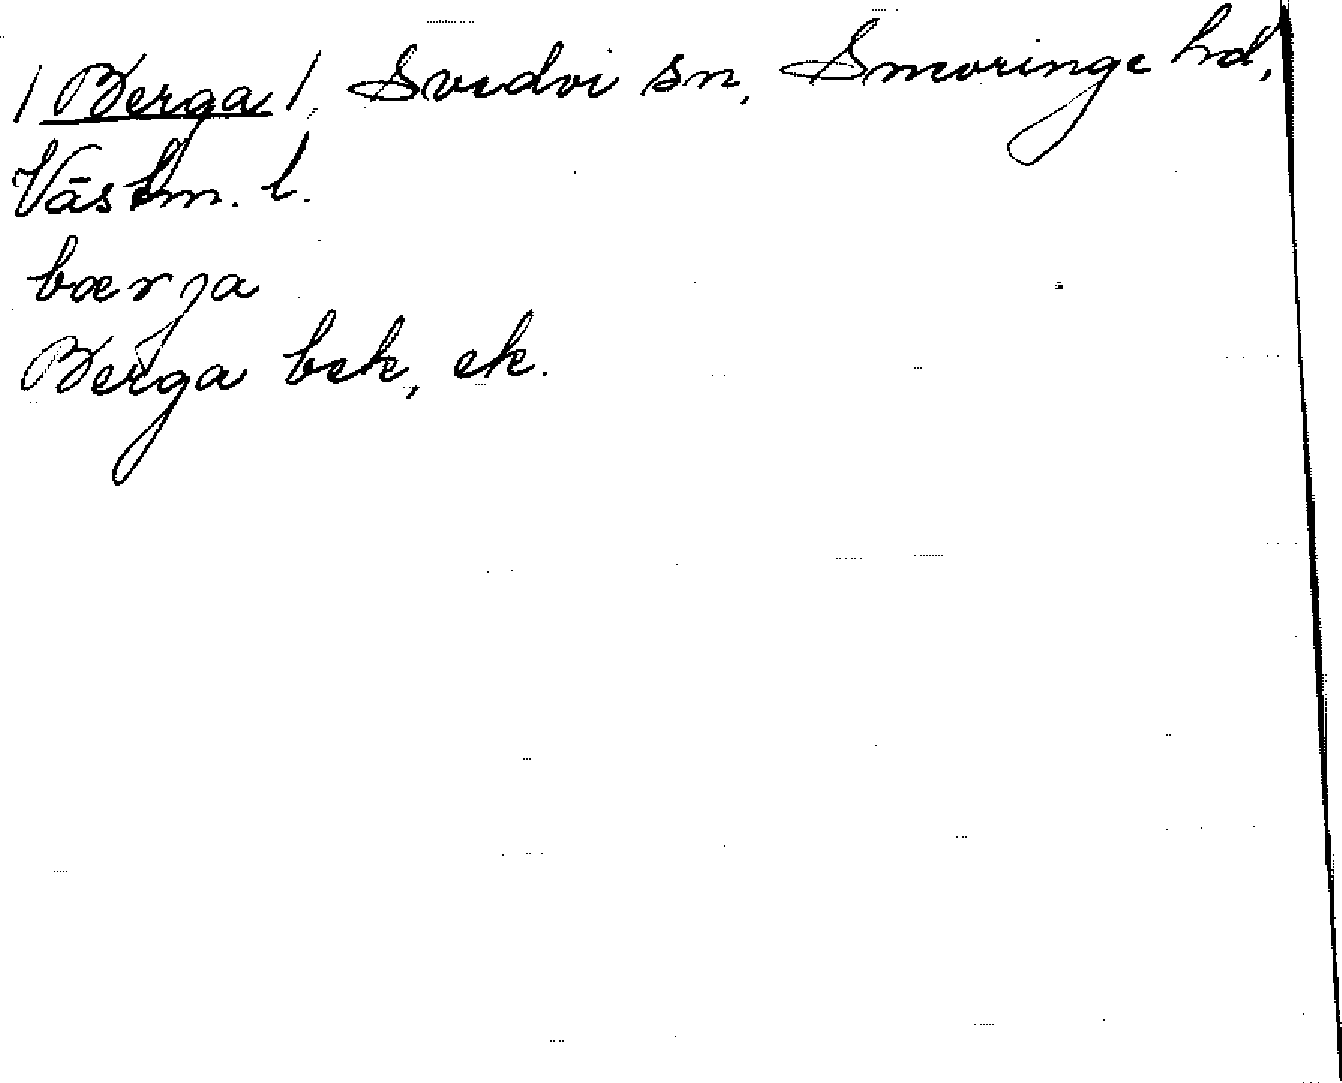 / Berga /, Svedvi sn, Snevringe hd,
Västm. l.
bærja
Berga bek, ek.